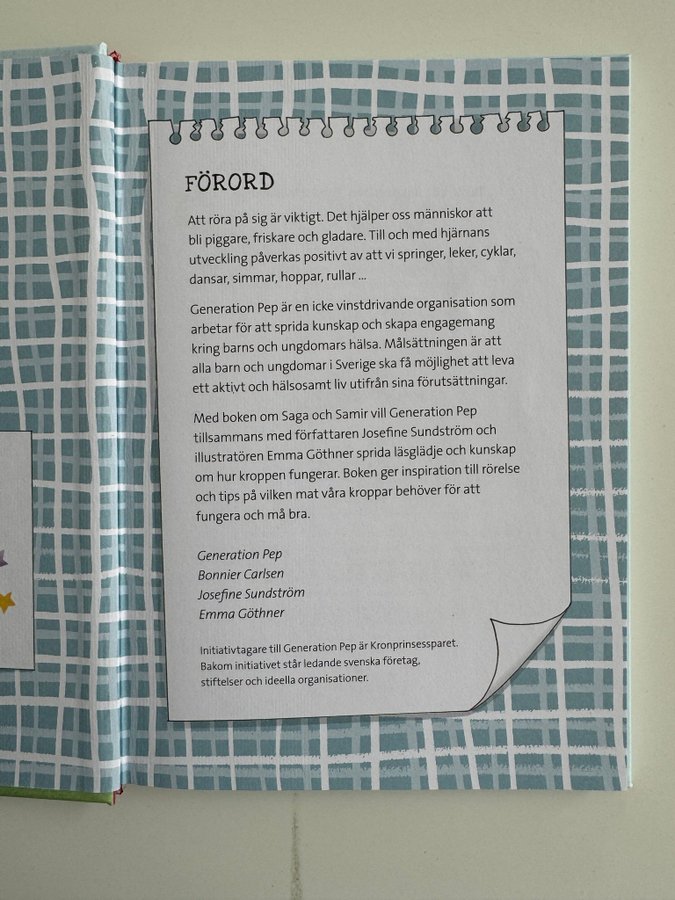 FÖRORD
Att röra på sig är viktigt. Det hjälper oss människor att
bli piggare, friskare och gladare. Till och med hjärnans
utveckling påverkas positivt av att vi springer, leker, cyklar,
dansar, simmar, hoppar, rullar ...
Generation Pep är en icke vinstdrivande organisation som
arbetar för att sprida kunskap och skapa engagemang
kring barns och ungdomars hälsa. Målsättningen är att
alla barn och ungdomar i Sverige ska få möjlighet att leva
ett aktivt och hälsosamt liv utifrån sina förutsättningar.
Med boken om Saga och Samir vill Generation Pep
tillsammans med författaren Josefine Sundström och
illustratören Emma Göthner sprida läsglädje och kunskap
om hur kroppen fungerar. Boken ger inspiration till rörelse
och tips på vilken mat våra kroppar behöver för att
fungera och må bra.
Generation Pep
Bonnier Carlsen
Josefine Sundström
Emma Göthner
Initiativtagare till Generation Pep är Kronprinsessparet.
Bakom initiativet står ledande svenska företag,
stiftelser och ideella organisationer.